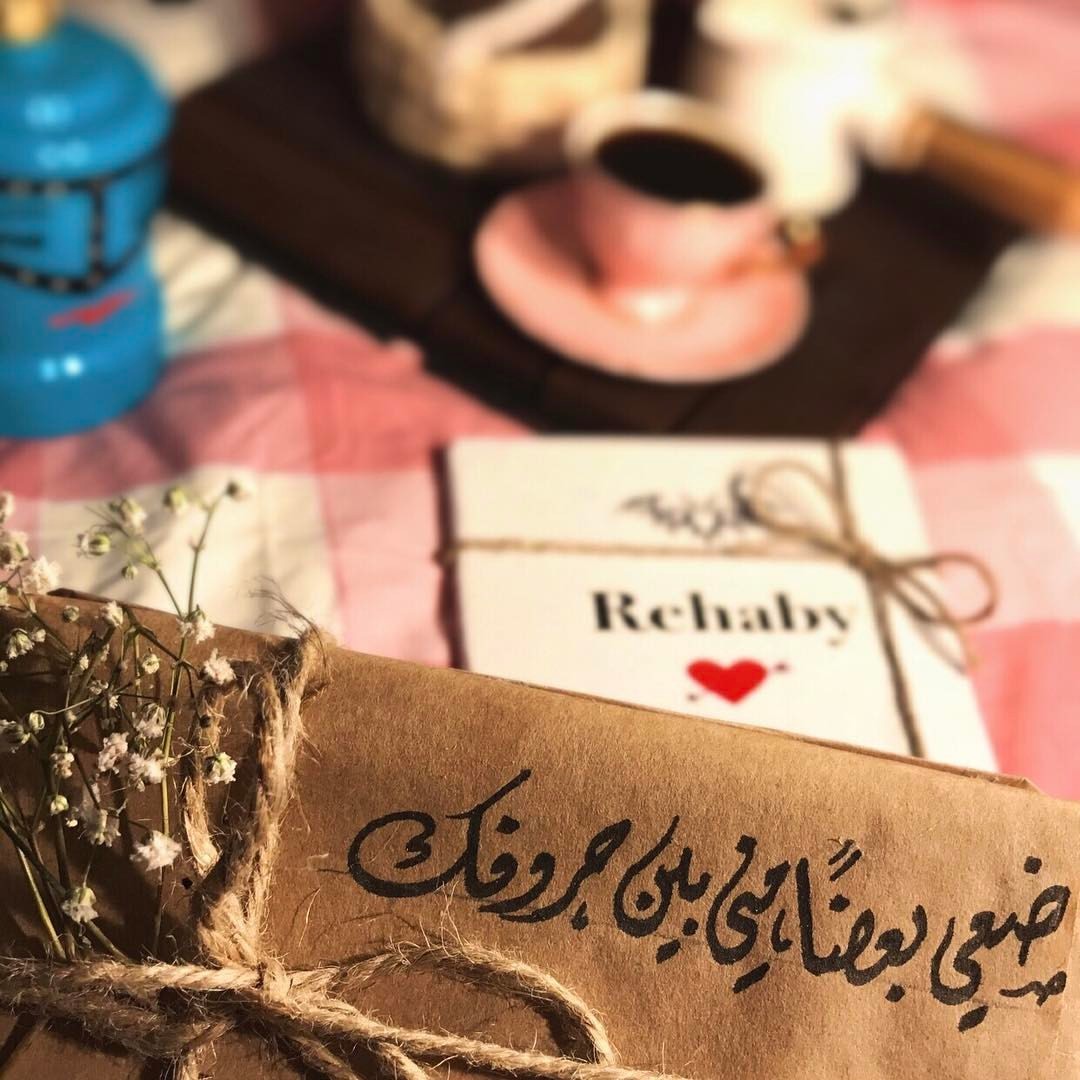 Rehaby
ضيعي بعضًا مني بين حروفك